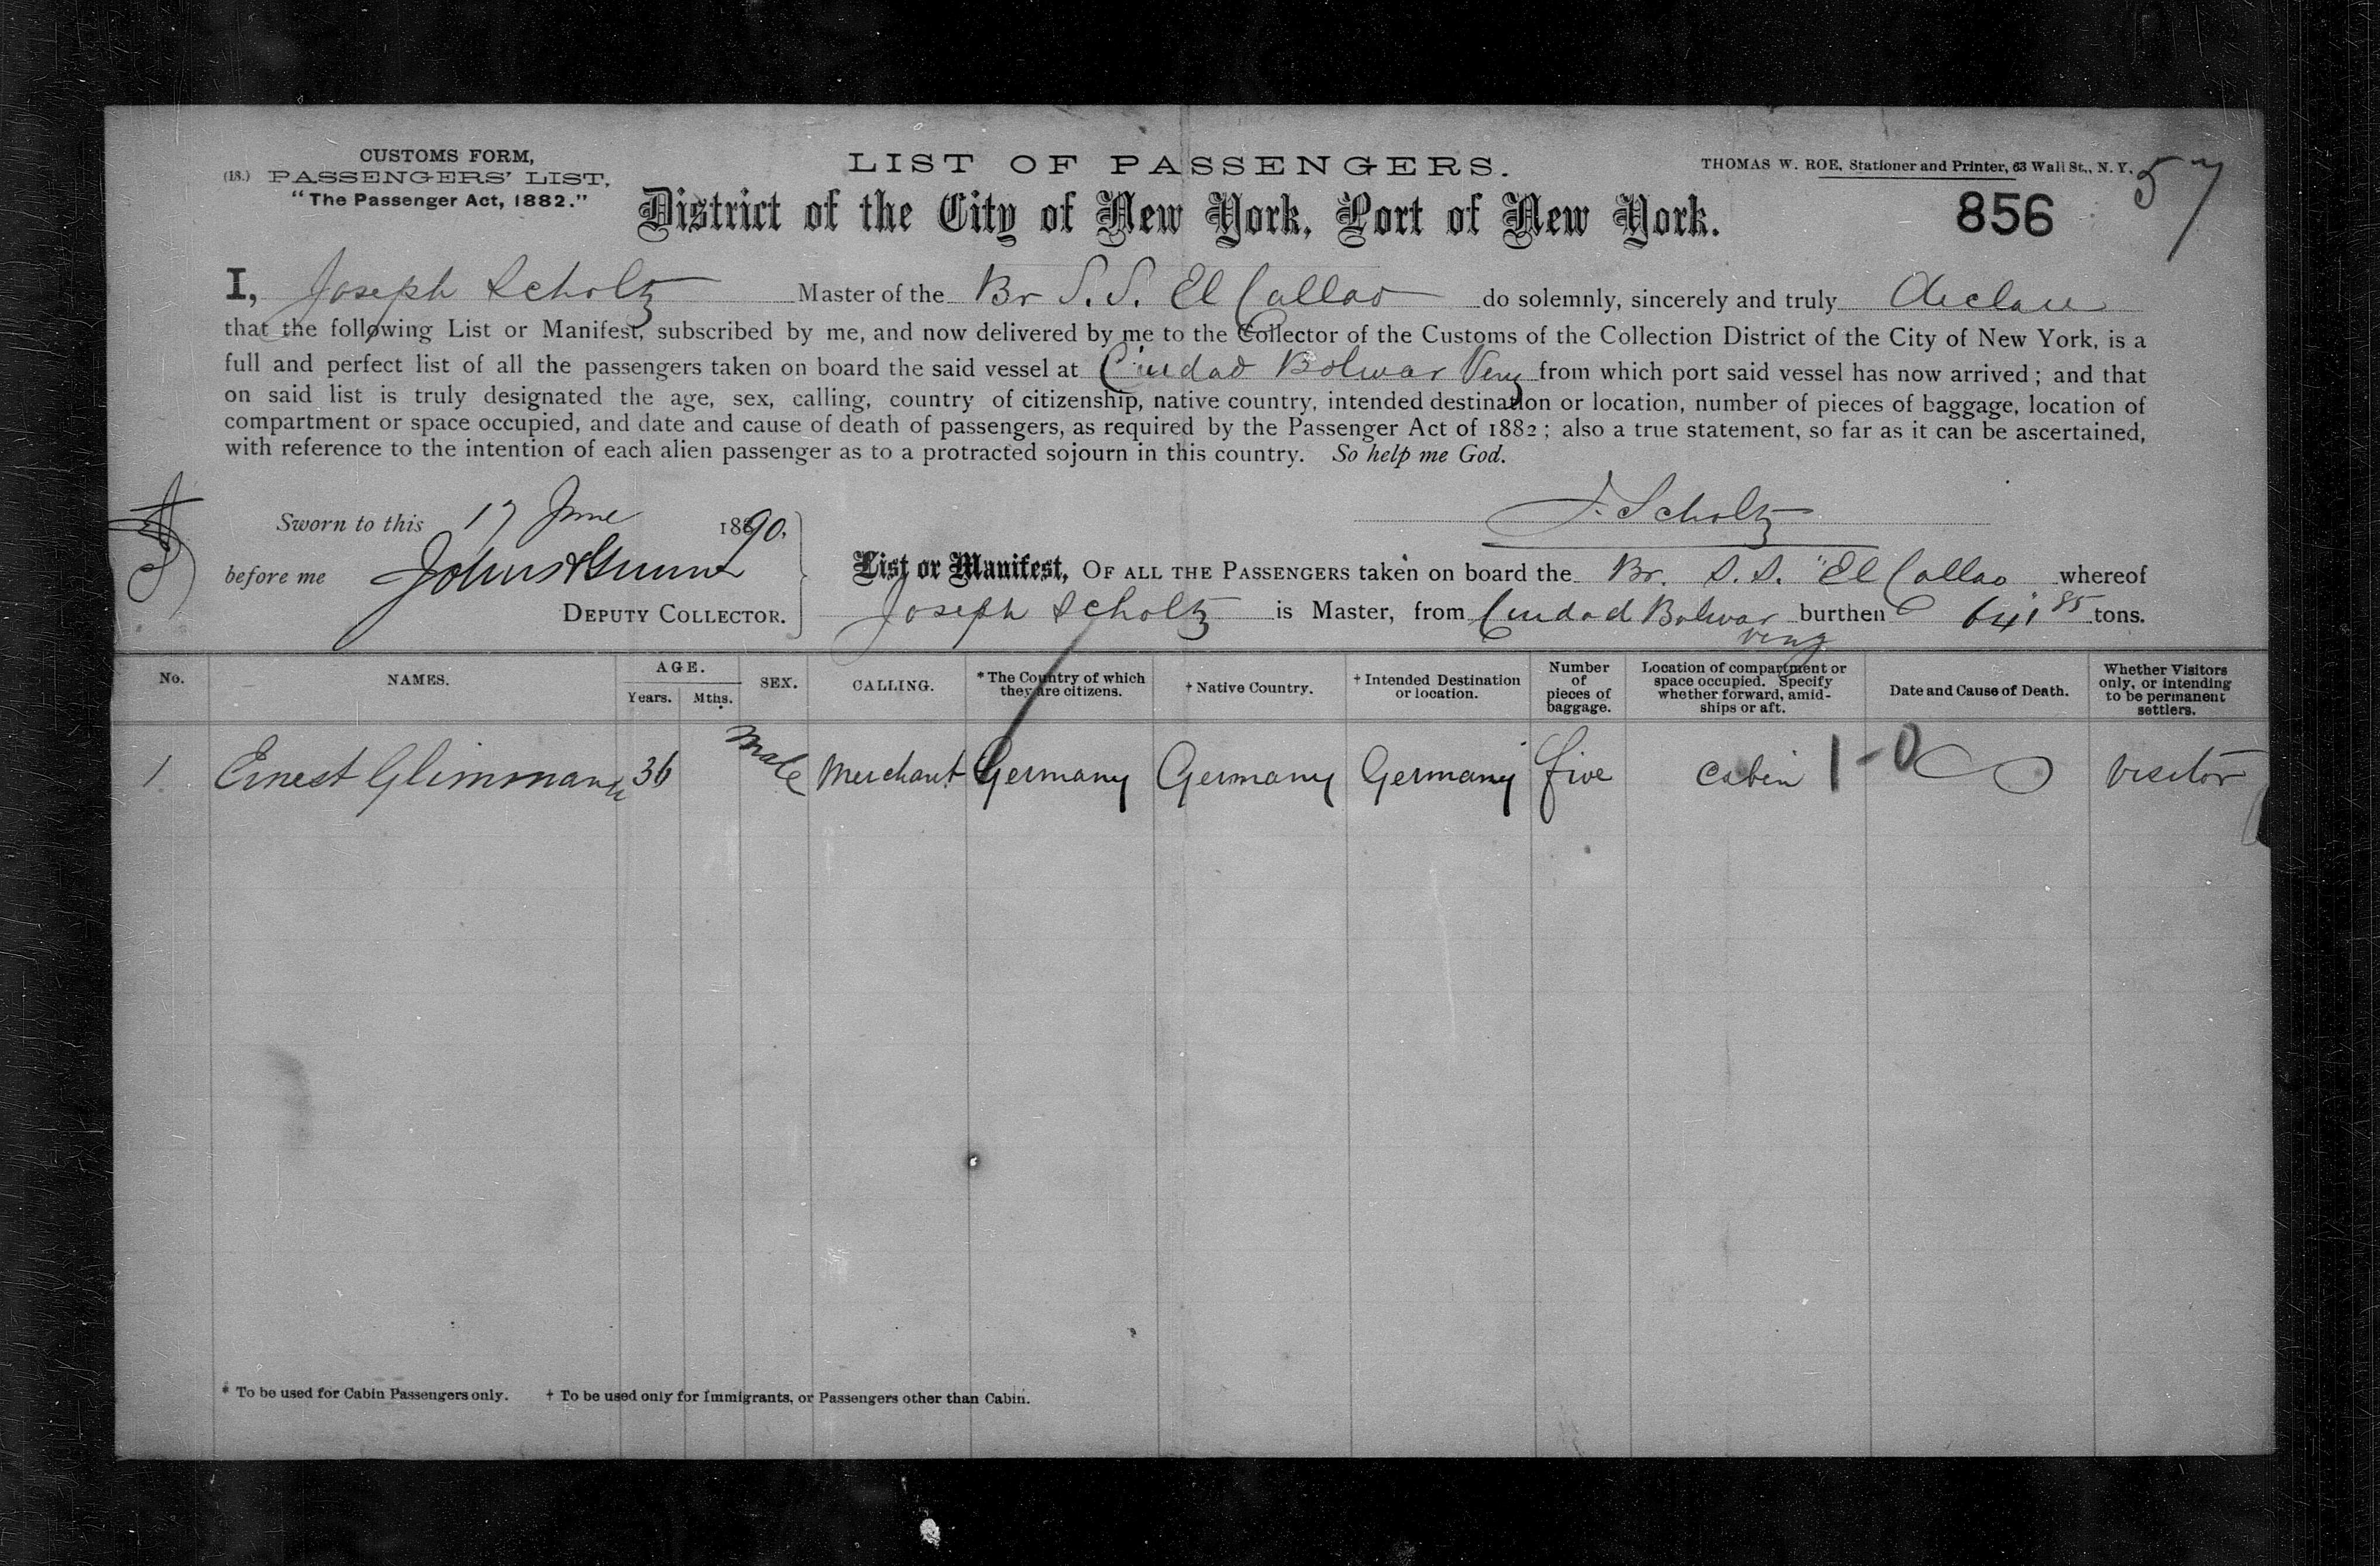 CUSTOMS FORM,
(18.) PASSENGERS' LIST,
"The Passenger Act, 1882."
LIST OF PASSENGERS.
THOMAS W. ROE, Stationer and Printer, 63 Wall St., N. Y.
57
District of the City of New York, Port of New York.
856
I, Joseph Scholtz Master of the Br S. S. El Callao do solemnly, sincerely and truly declare
that the following List or Manifest, subscribed by me, and now delivered by me to the Collector of the Customs of the Collection District of the City of New York, is a
full and perfect list of all the passengers taken on board the said vessel at Ciudad Bolivar Venz from which port said vessel has now arrived; and that
on said list is truly designated the age, sex, calling, country of citizenship, native country, intended destination or location, number of pieces of baggage, location of
compartment or space occupied, and date and cause of death of passengers, as required by the Passenger Act of 1882; also a true statement, so far as it can be ascertained,
with reference to the intention of each alien passenger as to a protracted sojourn in this country. So help me God.
J. Scholtz
Sworn to this 17 June 1890,
before me
DEPUTY COLLECTOR.
List or Manifest, OF ALL THE PASSENGERS taken on board the Br. S. S. "El Callao whereof
Joseph Scholtz is Master, from Ciudad Bolivar Venz burthen 641 85 tons.
No. NAMES. AGE. Years. Mths. SEX. CALLING. * The Country of which they are citizens. † Native Country. † Intended Destination or location. Number of pieces of baggage. Location of compartment or space occupied. Specify whether forward, amid-ships or aft. Date and Cause of Death. Whether Visitors only, or intending to be permanent settlers.
1 Ernest Glimmann 36 Male Merchant Germany Germany Germany five Cabin 1-0 Visitor
* To be used for Cabin Passengers only. † To be used only for Immigrants, or Passengers other than Cabin.